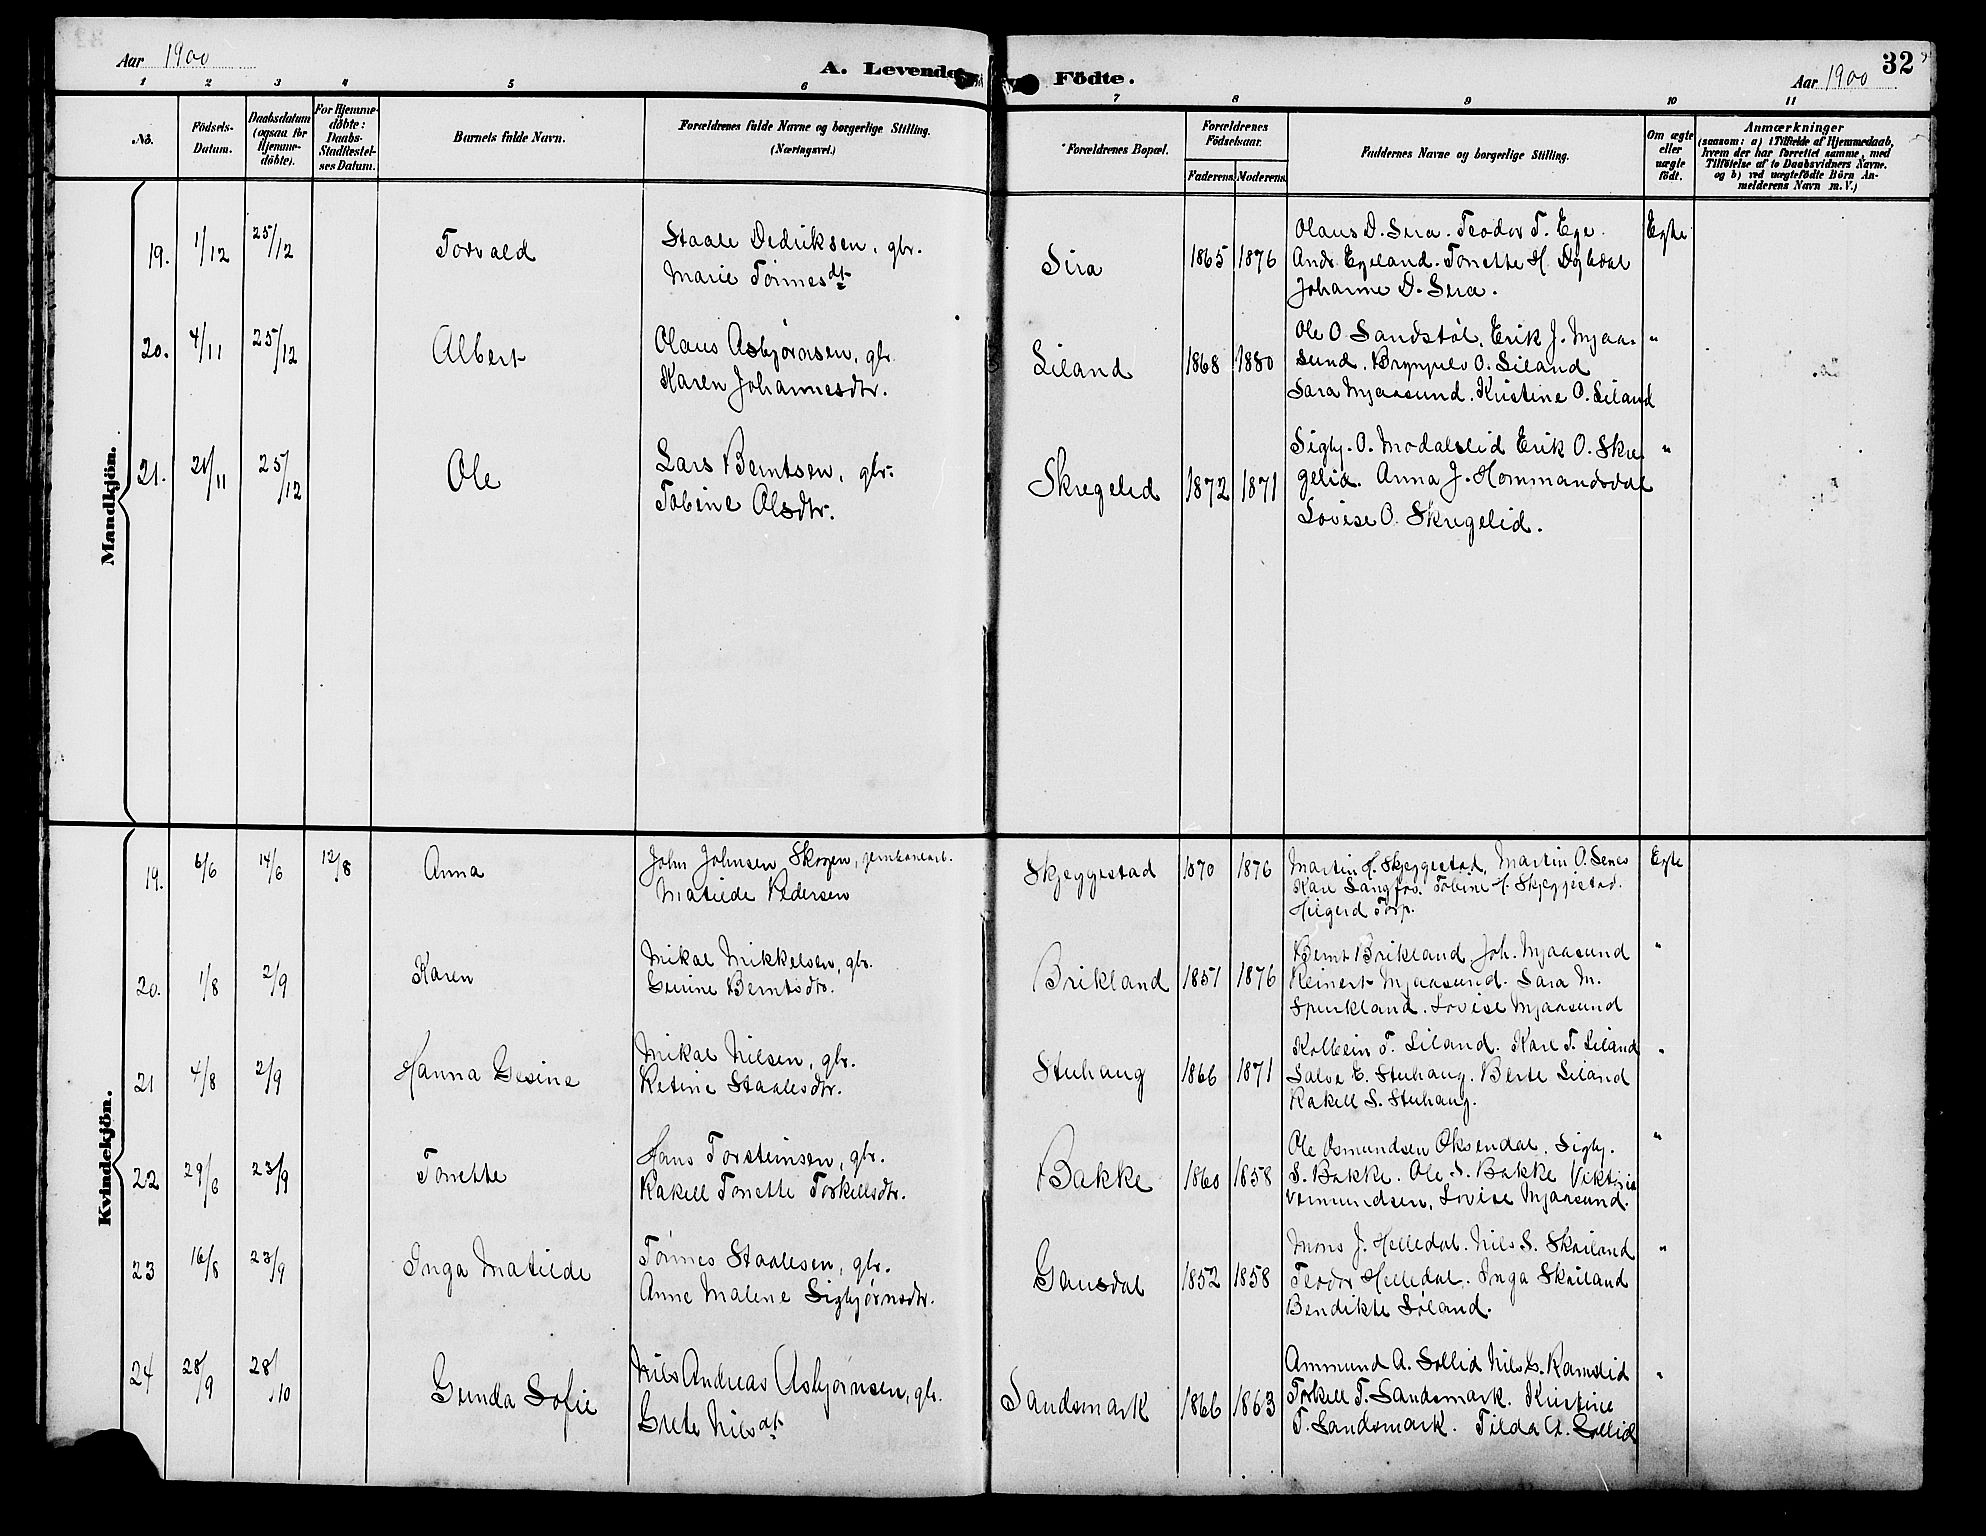 Aar 1900
A. Levende Födte.
Aar 1900
32
1 2 3 4 5 6 7 8 9 10 11
No.
Födsels-Datum.
Daabsdatum (ogsaa for Hjemme-döbte).
For Hjemme-döbte: Daabs-Stadfestel-ses Datum.
Barnets fulde Navn.
Forældrenes fulde Navne og borgerlige Stilling.
(Næringsvei.)
Forældrenes Bopæl.
Forældrenes Födselsaar.
Faderens Moderens
Faddernes Navne og borgerlige Stilling.
Om ægte eller uægte födt.
Anmærkninger
(saasom: a) i Tilfælde af Hjemmedaab,
hvem der har forrettet samme, med
Tilföielse af to Daabsvidners Navne.
og b) ved uægtefödte Börn An-
melderens Navn m. V.)
Mandkjön.
19. 1/12 25/12 Torvald
Staale Dedriksen, gbr.
Marie Tønnesdt.
Sira 1865 1876
Olaus D. Sira. Teodor T. Ege.
Andr. Egeland. Tonette H. Dybdal
Johanne D. Sira.
Egte
20. 4/11 25/12 Albert
Olaus Asbjørnsen, gbr.
Karen Johannesdtr.
Liland 1868 1880
Ole O. Sandstøl, Erik J. Mjaa-
sund. Brynjulv O. Liland
Sara Mjaasund. Kristine O. Liland
"
21. 21/11 25/12 Ole
Lars Berntsen, gbr.
Tobine Olsdtr.
Skregelid 1872 1871
Sigbj. O. Modalslid Erik O. Skre-
gelid. Anna J. Hommandsdal
Lovise O. Skregelid.
"
Kvindekjön.
19. 6/6 14/6 12/8 Anna
John Johnsen Skogen,
Matilde Pedersen
Skjeggestad 1870 1876
Martin H. Skjeggestad, Martin O. Senes
Kari Langfos. Tobine H. Skjeggestad.
Hilgerd Torp.
Egte
20. 1/8 2/9 Karen
Mikal Mikkelsen, gbr.
Gurine Berntsdtr.
Brikland 1851 1876
Bernt Brikland Joh. Mjaasund
Reinert Mjaasund. Sara M.
Spirkland. Lovise Mjaasund
"
21 4/8 2/9 Hanna Gesine
Mikal Nilsen, gbr.
Retine Staalesdtr.
Stuhaug 1866 1871
Kolbein T. Liland. Karl T. Liland
Salve E. Stuhaug. Berte Liland
Rakell S. Stuhaug.
"
22 29/6 23/9 Tonette
Hans Torsteinsen, gbr.
Rakell Tonette Torkellsdtr.
Bakke 1860 1858
Ole Osmundsen Øksendal. Sigbj.
S. Bakke. Ole S. Bakke Viktoria
Osmundsen, Lovise Mjaasund.
"
23 16/8 23/9 Inga Matilde
Tønnes Staalesen, gbr.
Anne Malene Sigbjørnsdtr.
Gausdal 1852 1858
Mons J. Helledal. Nils S. Skailand
Teodor Helledal. Inga Skailand
Bendikte Søland.
"
24 28/9 28/10 Gunda Sofie
Nils Andreas Asbjørnsen, gbr.
Grete Nilsdt.
Sandsmark 1866 1863
Ammund A. Sollid Nils G. Ramslid
Torkell T. Sandsmark. Kristine
T. Sandsmark. Tilda A. Sollid
"